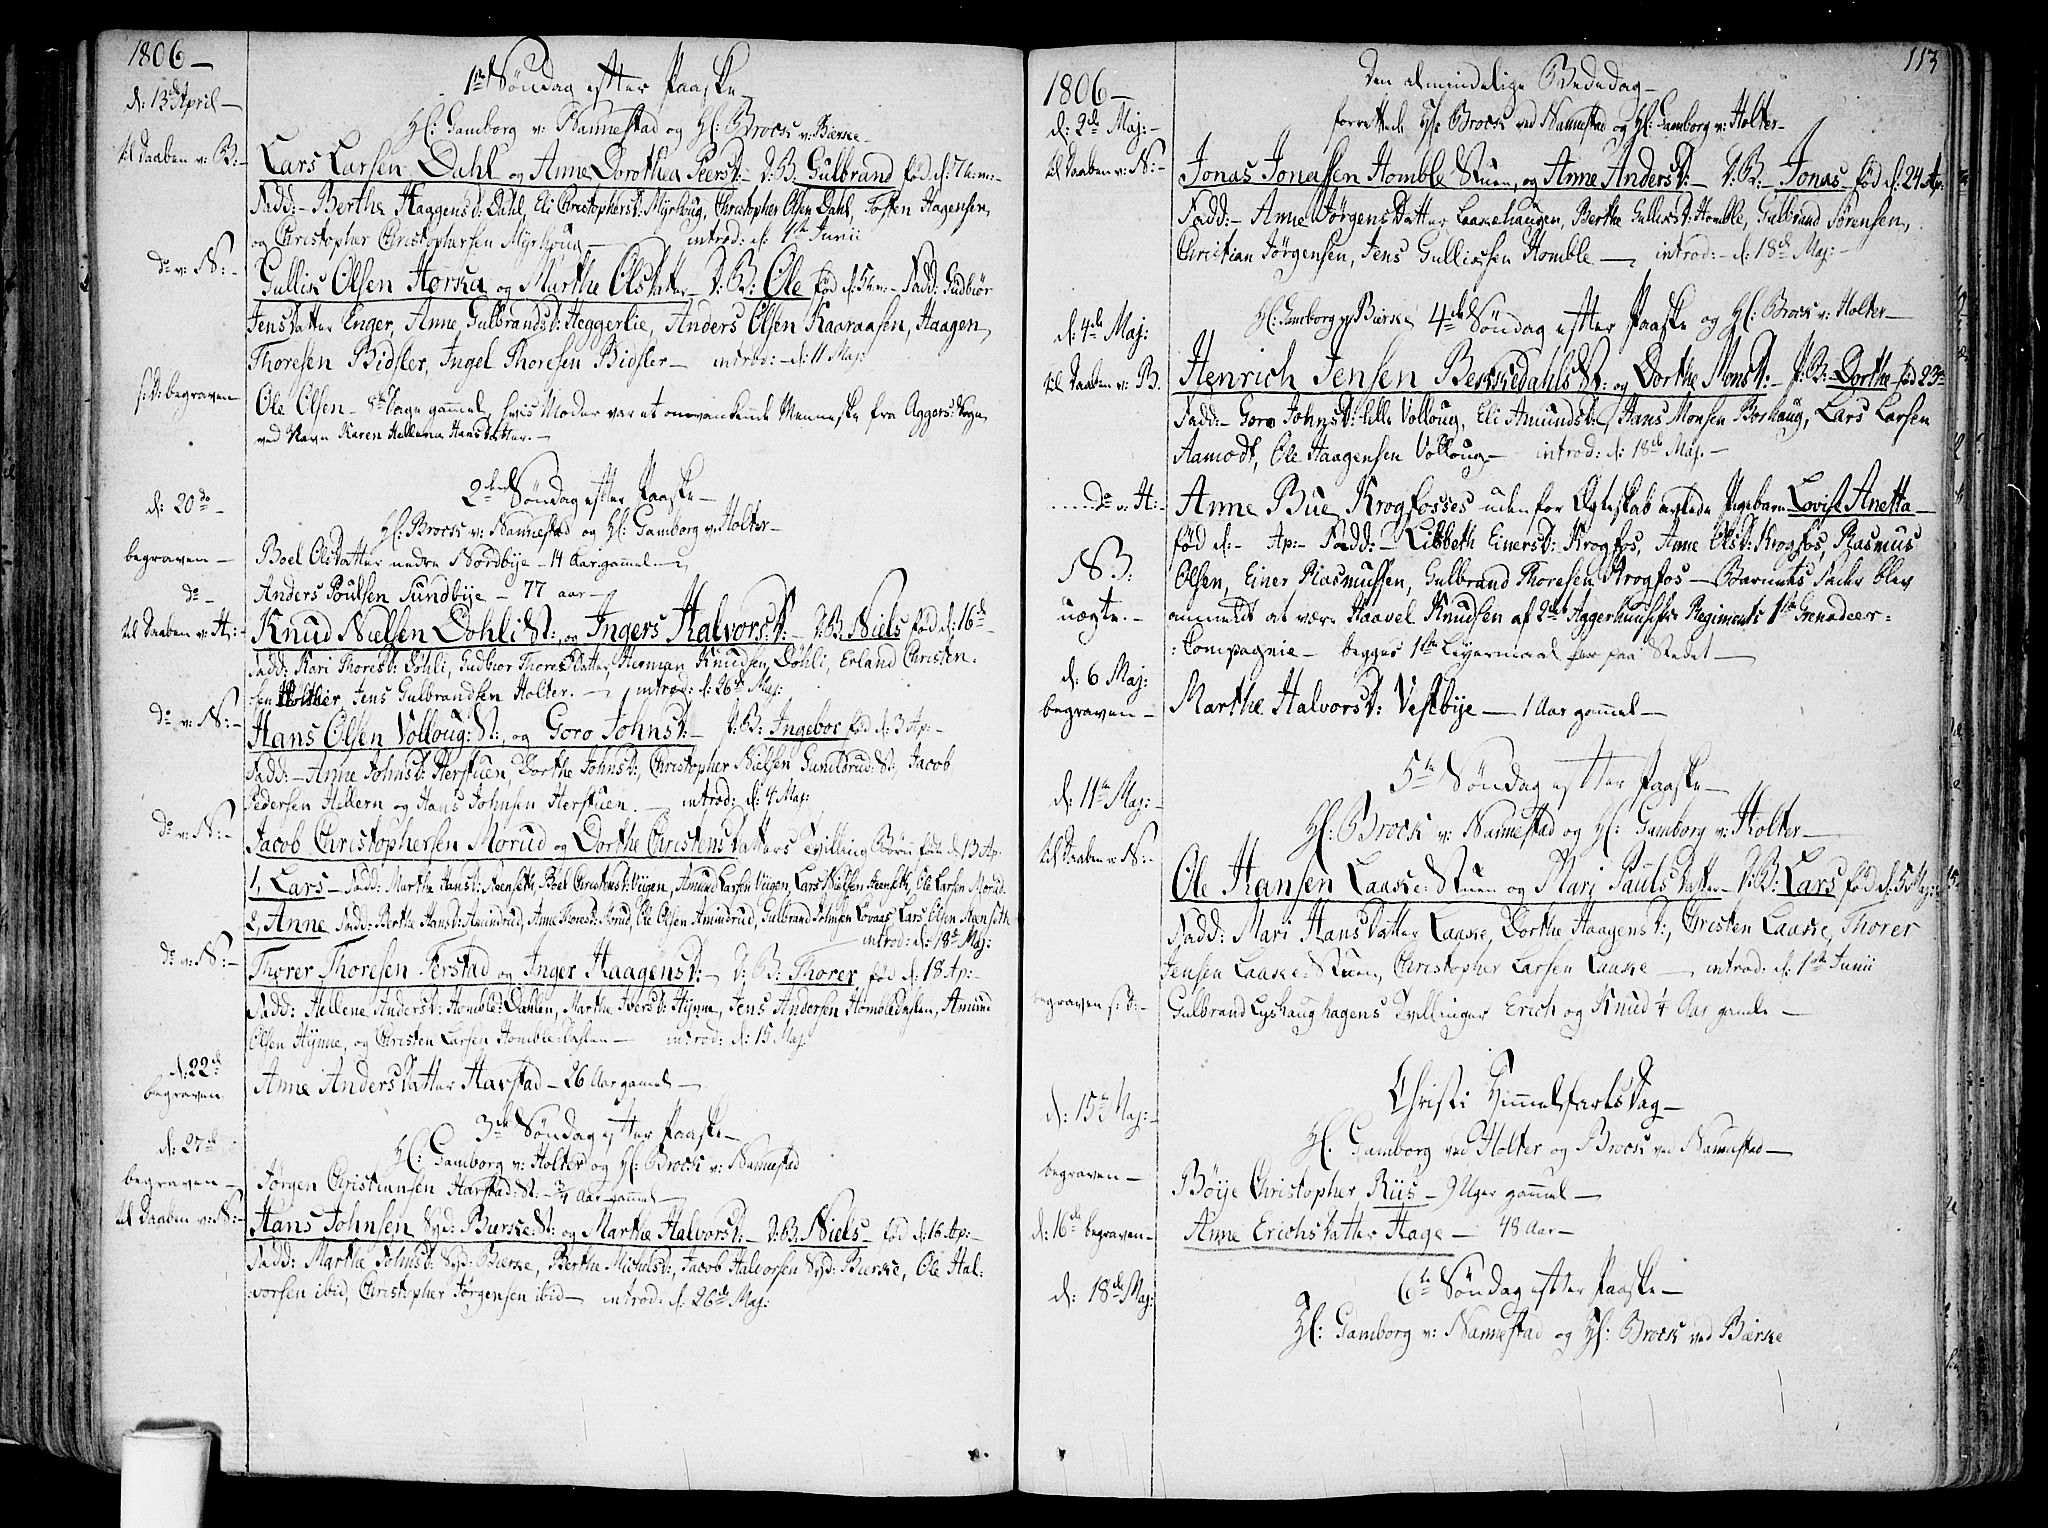 1806 –
1te Søndag efter Paaske –
d: 13de April –
H: Gamborg v: Nannestad og H: Brock v: Bierke –
til Daaben v: B: –
Lars Larsen Dahl og Anne Dorothea Peersd: – D: B: Gulbrand fød d: 7
Fadd: – Berthe Haagensd: Dahl, Eli Christophersd: Myrhoug, Christopher Olsen Dahl, Tosten Hagensen,
og Christopher Christophersen Myrhoug – introd: d: 1te Junii
do v: N: –
Gullik Olsen Horka og Marthe Olsdatter – D: B: Ole fød d: 5 – Fadd: Gudbiør
Jensdatter Enger, Anne Gulbrandsd: Heggerlie, Anders Olsen Kaaraasen, Haagen
Thoresen Bidsler, Ingel Thoresen Bidsler – introd: – d: 11 Maj:
s: D: begraven
Ole Olsen – 8te Dage gammel, hvis Moder var et omvankende Menneske fra Aggers Sogn,
ved Navn Karen Hellena Hansdatter. –
2den Søndag efter Paaske –
d: 20de –
H: Brock v: Nannestad og H: Gamborg v: Holter –
begraven –
Boel Olsdatter nedre Nordbije – 14 Aar gammel –
do –
Anders Poulsen Sundbije – 77 aar –
til Daaben v: H: –
Knud Nielsen Dohli St:, og Ingers Halvorsd: – D: B: Niels fød d: 16de
Fadd: Kari Thoresd: Döhli, Gudbiør Thoresdatter, Herman Knudsen Döhli, Erland Christen-
sen Holther, Jens Gulbrandsen Holter. – introd: d: 26de Maj:
do v: N: –
Hans Olsen Volloug: St:, og Goro Johnsd: – P: B: Ingebor fød d: 3 Ap: –
Fadd: – Anne Johnsd: Herstuen, Dorthe Johnsd:, Christopher Nielsen Gunildrud: St:, Jacob
Pedersen Hellern og Hans Johnsen Herstuen. – introd: d: 4 Maj:
do v: N: –
Jacob Christophersen Morud og Dorthe Christensdatters Tvilling Börn föde d: 13 Ap:
1, Lars – Fadd: Marthe Hansd: Aenseth, Boel Christensd: Viigen, Amund Larsen Viigen, Lars Nielsen Aenseth, Ole Larsen Morud.
2, Anne Fadd: Berthe Hansd: Amundrud, Anne Thoresd: Morud, Ole Olsen Amundrud, Gulbrand Johnsen Lovaas, Lars Olsen Aenseth
introd: d: 18de Maj:
do v: N: –
Thorer Thoresen Ferstad og Inger Haagensd: – D: B: Thorer fød d: 18 Ap: –
Fadd: Hellene Andersd: Homble: Dahlen, Marthe Iversd: Hynne, Jens Andersen Hombledahlen, Amund
Olsen Hynne, og Christen Larsen Homble: – introd: d: 15 Maj:
d: 22de
begraven
Anne Andersdatter Harstad – 26 Aar gamel –
3de Søndag efter Paaske –
d: 27de
H: Gamborg v: Holter og H: Brock v: Nannestad
begraven –
Jørgen Christiansen Harstad: St: – 3/4 Aar gammel –
til Daaben v: N: –
Hans Johnsen Syd: Burske: St: og Marthe Halvorsd: – D: B: Niels – fød d: 16 Ap: –
Fadd: Marthe Johnsd: Syd: Bierke, Berthe Michelsd:, Jacob Halvorsen Syd: Bierke, Ole Hal-
vorsen ibid, Christopher Jørgensen ibid – introd: d: 26de Maj:
113
1806 –
Den almindelige Bededag –
d: 2de Maj: –
forrettede H: Brock ved Nannestad og H: Gamborg v: Holter –
til Daaben v: N: –
Jonas Jonassen Homble Stuen, og Anne Andersd: – D: B: Jonas – fød d: 24 Ap:
Fadd: – Anne Jørgensdatter Laakehaugen, Berthe Gulliksd: Homble, Gulbrand Sørensen,
Christian Jørgensen, Jens Gullicssen Homble – introd: – d: 18de Maj: –
d: 4de Maj:
H: Gamborg v: Bierke 4de Søndag efter Paaske og H: Brock v: Holter –
til Daaben v: B.
Henrich Jensen Bekkedahls St: og Dorthe Monsd: – P: B: Dorthe fød 23
Fadd: – Goro Johnsd: lille Volloug, Eli Amundsd:, Hans Monsen Borhaug, Lars Larsen
Aamodt, Ole Haagensen Volloug – introd: d: 18de Maj. –
do v: H: –
Anne Bue Krogfosses uden for Ægteskab avlede Pigebarn Lovise Anetta –
fød d: – Ap: – Fadd: – Lisbeth Einersd: Krogfos, Anne Olsd: Krogfos, Rasmus
NB:
Olsen, Einer Rasmussen, Gulbrand Thoresen Krogfos – Barnets Fader blev
uægte. –
anmeldt at være Haavel Knudsen af 2det Aggerhuusiske Regiments 1te Grenadeer-
Compagnie – begges 1te Leyermaal paa Stedet –
d: 6 Maj:
begraven –
Marthe Halvorsd: Vestbije – 1 Aar gammel –
5te Søndag efter Paaske –
d: 11te Maj: –
H: Brock v: Nannestad og H: Gamborg v: Holter –
til Daaben v: N: –
Ole Hansen Laake: Stuen og Mari Paulsdatter – D: B: Lars fød d: 5 Maj:
Fadd: Mari Hansdatter Laake, Dorthe Haagensd:, Christen Laake, Thorer
Jensen Laake: Stuen, Christopher Larsen Laake – introd: d: 1te Junii
begraven s: D: –
Gulbrand Lyshaughagens Tvillinger Erich og Knud 1/4 Aar gamle –
Christi Himmelfarts Dag –
d: 15te Maj: –
H: Gamborg ved Holter og Brock ved Nannestad –
begraven –
Böije Christopher Riis – 9 Uger gammel –
d: 16de begraven –
Anne Erichsdatter Hage – 48 Aar –
6te Søndag efter Paaske –
d: 18de Maj:
H: Gamborg v: Nannestad og H: Brock ved Bierke